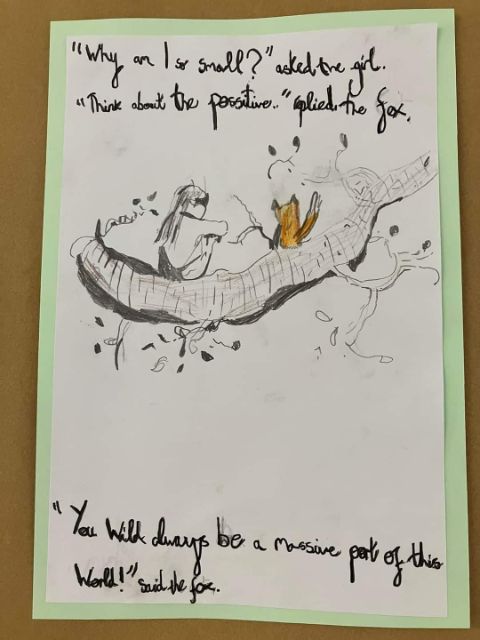 "Why am I so small?" asked the girl.
"Think about the possitive.." replied the fox.
"You Will always be a massive part of this
World!" said the fox.